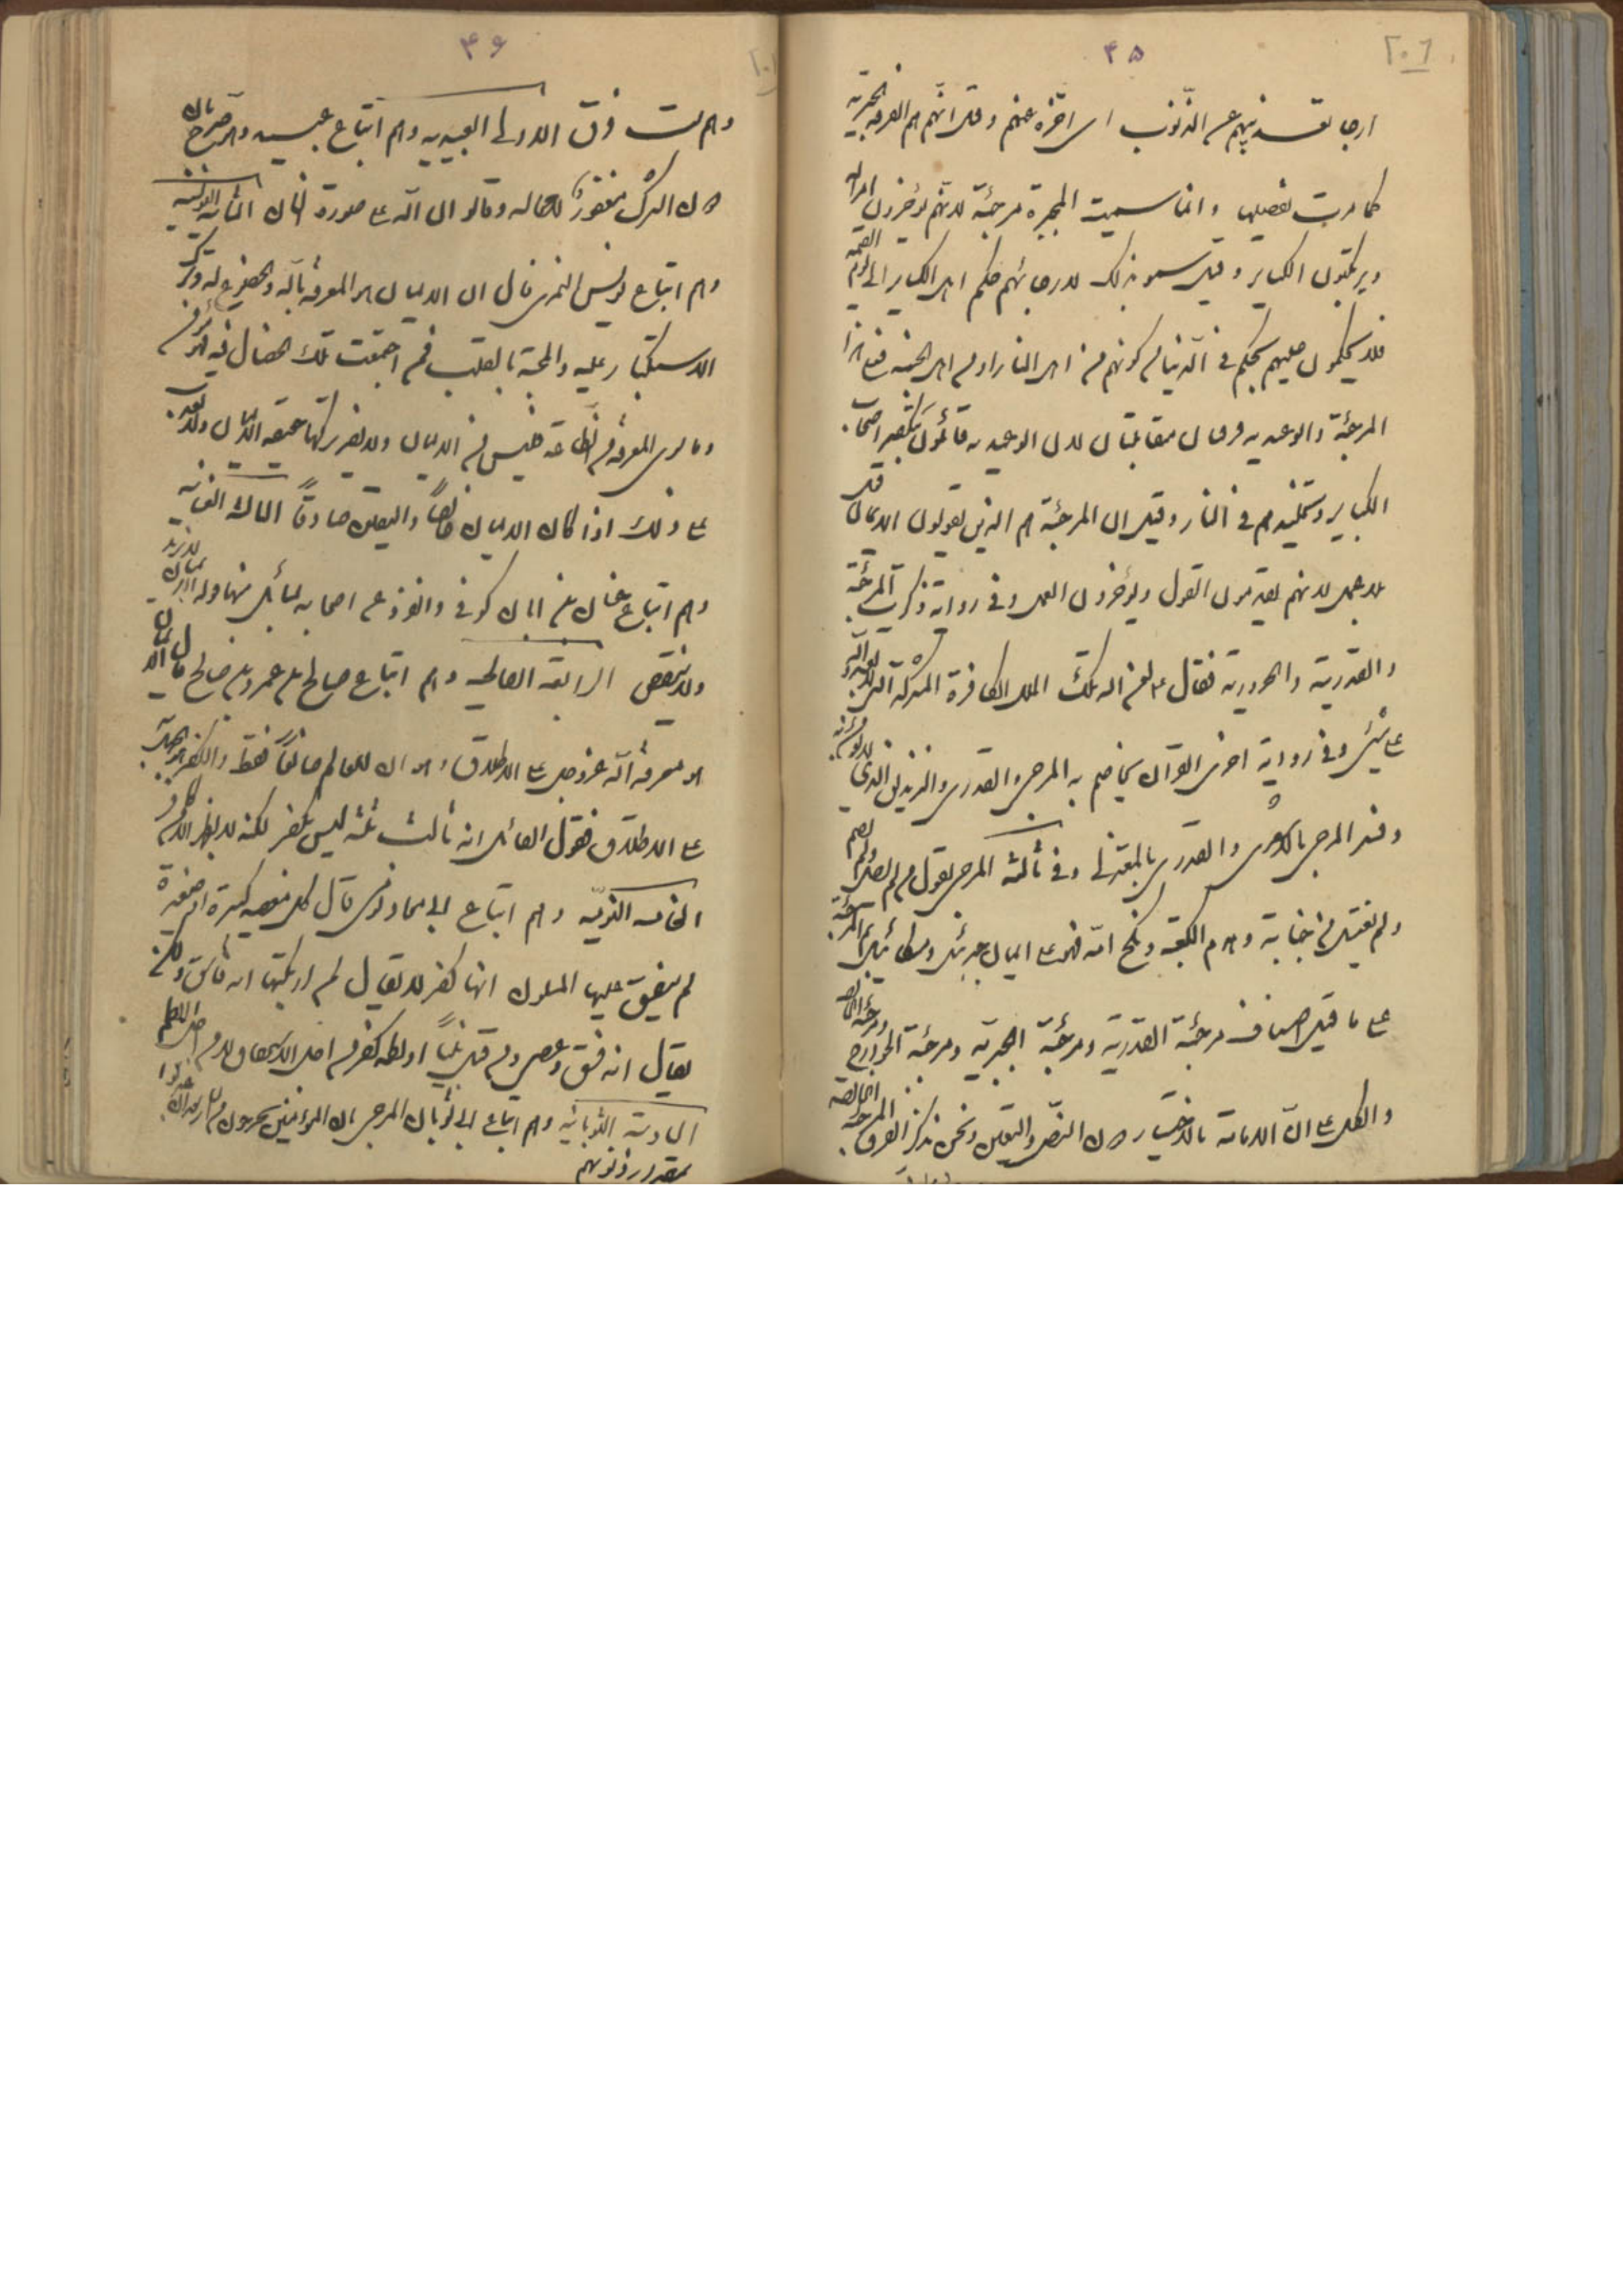 ۴۵
٢٠٦
ارجا تعذيبهم عن الذنوب اى اخره عنهم وقيل انهم هم الفرقه الجبرية
كما مرت تفصيلها وانما سميت المجبرة مرجئة لانهم يؤخرون امر الله
ويرتكبون الكباير وقيل سموا بذلك لارجائهم حكم اهل الكباير الى يوم القيمة
فلا يحكمون عليهم بحكم فى الدنيا من كونهم من اهل النار او من اهل الجنة فعلى هذا
المرجئة والوعيديه فرقتان متقابلتان لان الوعيديه قائلون بتكفير اصحاب
الكباير وتخليدهم فى النار وقيل ان المرجئة هم الذين يقولون الايمان قول
بلا عمل لانهم يقدمون القول ويؤخرون العمل وفى رواية ذكرت المرجئة
والقدرية والحرورية فقال ع لعن الله تلك الملل الكافرة المشركة التى لا تعبد الله
على شئ وفى رواية اخرى القرآن يخاصم به المرجئ والقدرى والزنديق الذى لا يؤمن به
وفسر المرجئ بالاشعرى والقدرى بالمعتزلى وفى ثالثه المرجئ يقول من لم يصل ولم يصم
ولم يغتسل من جنابة وهدم الكعبة ونكح امه فهو على ايمان جبرئيل وميكائيل ثم المرجئة
على ما قيل اصناف مرجئة القدرية ومرجئة الجبرية ومرجئة الخوارج ومرجئة الخالصة
والكل على ان الامامة بالاختيار دون النص والتعيين ونحن نذكر الفرق المرجئة الخالصة
۴۶
وهم ست فرق الاولى العبيديه وهم اتباع عبيد
دون الشرك مغفور لا محاله وقالوا ان الله على صورة انسان الثانية اليونسية
وهم اتباع يونس النمرى قال ان الايمان هو المعرفة بالله والخضوع له وترك
الاستكبار عليه والمحبة بالقلب فمن اجتمعت تلك الخصال فيه فهو مؤمن
وما سوى المعرفة من الطاعة فليس من الايمان ولا يضر تركها حقيقة الايمان ولا يعذب
على ذلك اذا كان الايمان خالصا واليقين صادقا الثالثة الغسانيه
وهم اتباع غسان بن ابان كوفى
ولا ينقص الرابعة الصالحيه وهم اتباع صالح بن عمرو بن صالح قال الايمان
هو معرفة الله عز وجل على الاطلاق وهو ان للعالم صانعا فقط والكفر هو الجهل به
على الاطلاق فقول القائل انه ثالث ثلثة ليس بكفر لكنه لا يظهر الا من كافر
الخامسه الثومنيه وهم اتباع ابى معاذ ثومنى قال كل معصية كبيرة او صغيرة
لم يتفق عليها المسلمون انها كفر لا يقال لمن ارتكبها انه فاسق ولكن
يقال انه فسق وعصى ومن قتل نبيا او لطمه كفر
السادسة الثوبانيه وهم اتباع ابى ثوبان المرجئ
بمقدار ذنوبهم